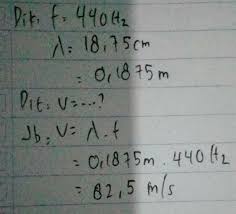 Dik, f = 440 Hz
λ = 18,75 cm
= 0,1875 m
Dit, V = ...?
Jb, V = λ . f
= 0,1875 m . 440 Hz
= 82,5 m/s